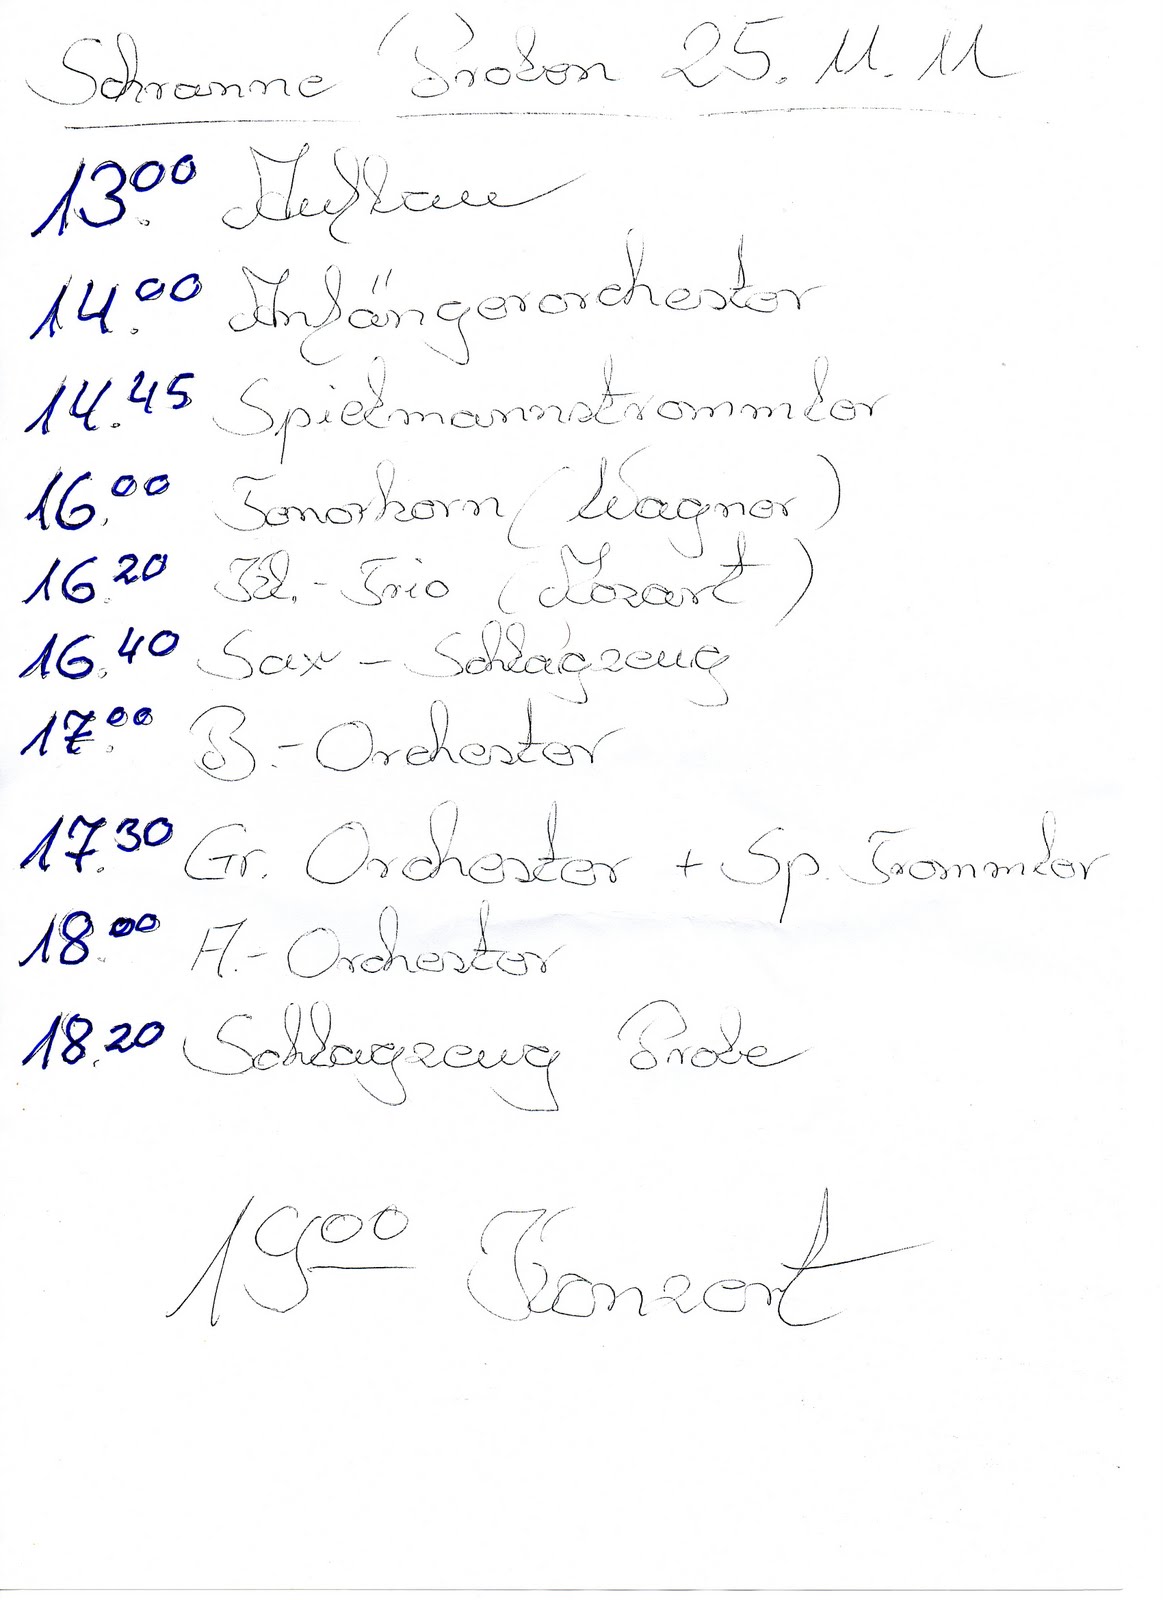 Schranne Proben 25. 11. 11
13.00 Aufbau
14.00 Anfängerorchester
14.45 Spielmannstrommler
16.00 Tenorhorn (Wagner)
16.20 Kl.-Trio (Mozart)
16.40 Sax - Schlagzeug
17.00 B.-Orchester
17.30 Gr. Orchester + Sp. Trommler
18.00 A.-Orchester
18.20 Schlagzeug Probe
19.00 Konzert